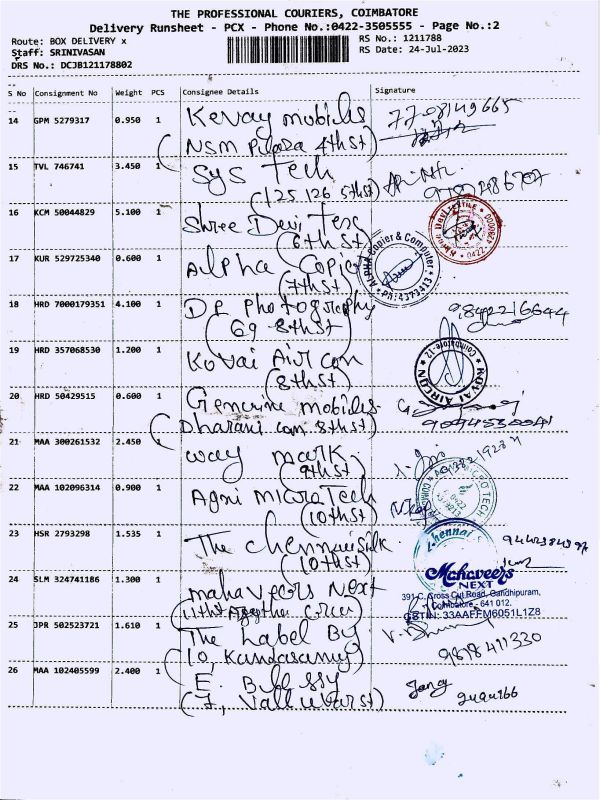 THE PROFESSIONAL COURIERS, COIMBATORE
Delivery Runsheet - PCX - Phone No.:0422-3505555 - Page No.:2
Route: BOX DELIVERY x
RS No.: 1211788
Staff: SRINIVASAN
RS Date: 24-Jul-2023
DRS No.: DCJB121178802
S No Consignment No Weight PCS Consignee Details Signature
14 GPM 5279317 0.950 1 Kevay mobiles 7708149665
(NSM Plaza 4th st)
15 TVL 746741 3.450 1 Sys Tech
(125 126 5th st)
16 KCM 50044829 5.100 1 Shree Devi Tex
(6th st)
17 KUR 529725340 0.600 1 Alpha Copier
(7th st)
ALPHA Copier & Computer
PH: 4373413
18 HRD 7000179351 4.100 1 DP Photography 9842216644
(69 8th st)
19 HRD 357068530 1.200 1 Kovai Air con
(8th st)
KOVAI AIRCON
Coimbatore-12
20 HRD 50429515 0.600 1 Genuine mobiles
(Dharani com 8th st)
21 MAA 300261532 2.450 1 way mark
(9th st)
22 MAA 102096314 0.900 1 Agni Micro Tech
(10th st)
23 HSR 2793298 1.535 1 The Chennai Silk
(10th st)
24 SLM 324741186 1.300 1 mahaveers Next
(11th st
Mahaveers
NEXT
391-C, Cross Cut Road, Gandhipuram,
Coimbatore - 641 012.
GSTIN: 33AAFFM6051L1Z8
25 JPR 502523721 1.610 1 The Label By
10, Kandasamy) 9818411330
26 MAA 102405599 2.400 1 E.
(7, Valluvar st)